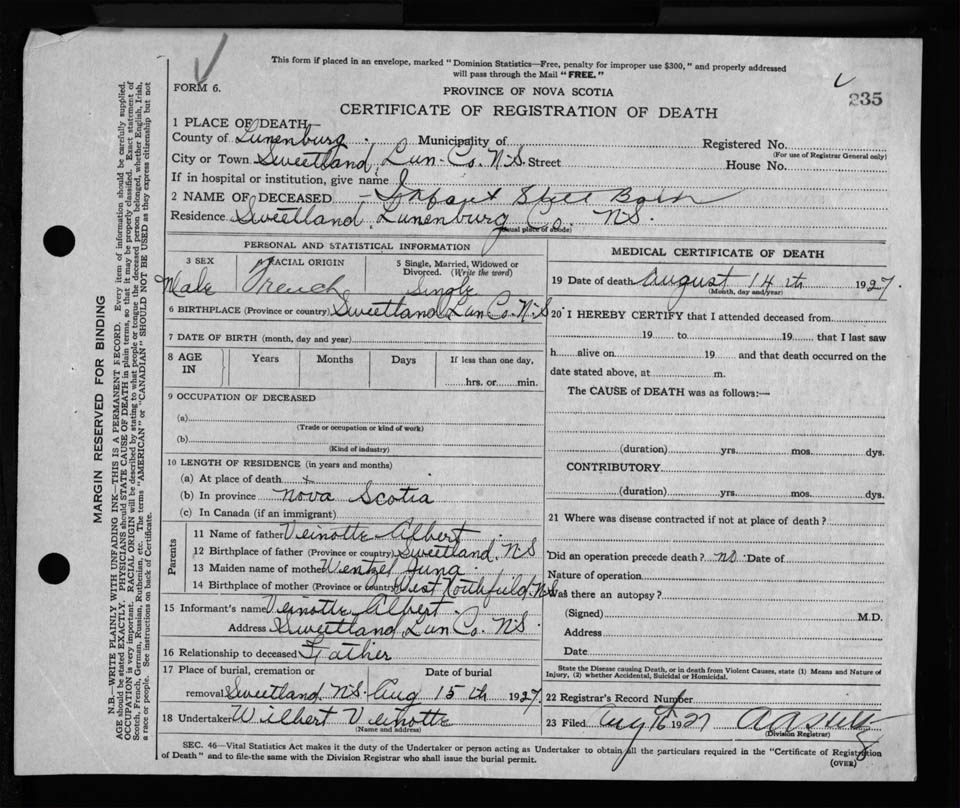 This form if placed in an envelope, marked "Dominion Statistics—Free, penalty for improper use $300," and properly addressed
will pass through the Mail "FREE."
FORM 6.
PROVINCE OF NOVA SCOTIA
235
CERTIFICATE OF REGISTRATION OF DEATH
1 PLACE OF DEATH—
County of Lunenburg. Municipality of Registered No.
(For use of Registrar General only)
City or Town Sweetland, Lun-Co. N.S. Street House No.
If in hospital or institution, give name
2 NAME OF DECEASED Infant Still Born
Residence Sweetland, Lunenburg Co., N.S.
(Usual place of abode)
PERSONAL AND STATISTICAL INFORMATION
3 SEX 4 RACIAL ORIGIN 5 Single, Married, Widowed or
Divorced. (Write the word)
Male French Single
6 BIRTHPLACE (Province or country) Sweetland, Lun Co. N.S
7 DATE OF BIRTH (month, day and year)
8 AGE IN Years Months Days If less than one day,
hrs. or min.
9 OCCUPATION OF DECEASED
(a)
(Trade or occupation or kind of work)
(b)
(Kind of industry)
10 LENGTH OF RESIDENCE (in years and months)
(a) At place of death
(b) In province Nova Scotia
(c) In Canada (if an immigrant)
Parents
11 Name of father Veinotte Albert
12 Birthplace of father (Province or country) Sweetland, N.S
13 Maiden name of mother Wentzel
14 Birthplace of mother (Province or Country) West Northfield, N.S
15 Informant's name Veinotte Albert
Address Sweetland, Lun Co. N.S.
16 Relationship to deceased Father
17 Place of burial, cremation or Date of burial
removal Sweetland, N.S. Aug 15 th 1927.
18 Undertaker Wilbert Veinotte
(Name and address)
MEDICAL CERTIFICATE OF DEATH
19 Date of death August 14 th 1927.
(Month, day and year)
20 I HEREBY CERTIFY that I attended deceased from
19 to 19 that I last saw
h alive on 19 and that death occurred on the
date stated above, at m.
The CAUSE of DEATH was as follows:—
(duration) yrs. mos. dys.
CONTRIBUTORY
(duration) yrs. mos. dys.
21 Where was disease contracted if not at place of death?
Did an operation precede death? no Date of
Nature of operation
Was there an autopsy?
(Signed) M.D.
Address
Date
State the Disease causing Death, or in death from Violent Causes, state (1) Means and Nature of
Injury, (2) whether Accidental, Suicidal or Homicidal.
22 Registrar's Record Number
23 Filed Aug 16 1927
(Division Registrar)
SEC. 46—Vital Statistics Act makes it the duty of the Undertaker or person acting as Undertaker to obtain all the particulars required in the "Certificate of Registration
of Death" and to file the same with the Division Registrar who shall issue the burial permit.
(OVER)
MARGIN RESERVED FOR BINDING
N.B.—WRITE PLAINLY WITH UNFADING INK—THIS IS A PERMANENT RECORD. Every item of information should be carefully supplied.
AGE should be stated EXACTLY. PHYSICIANS should STATE CAUSE OF DEATH in plain terms, so that it may be properly classified. Exact statement of
OCCUPATION is very important. RACIAL ORIGIN will be described by stating to what people or tongue the deceased person belonged, whether English, Irish,
Scotch, French, German, Russian, Ruthenian, etc. The terms "AMERICAN" or "CANADIAN" SHOULD NOT BE USED as they express citizenship but not
a race or people. See instructions on back of Certificate.